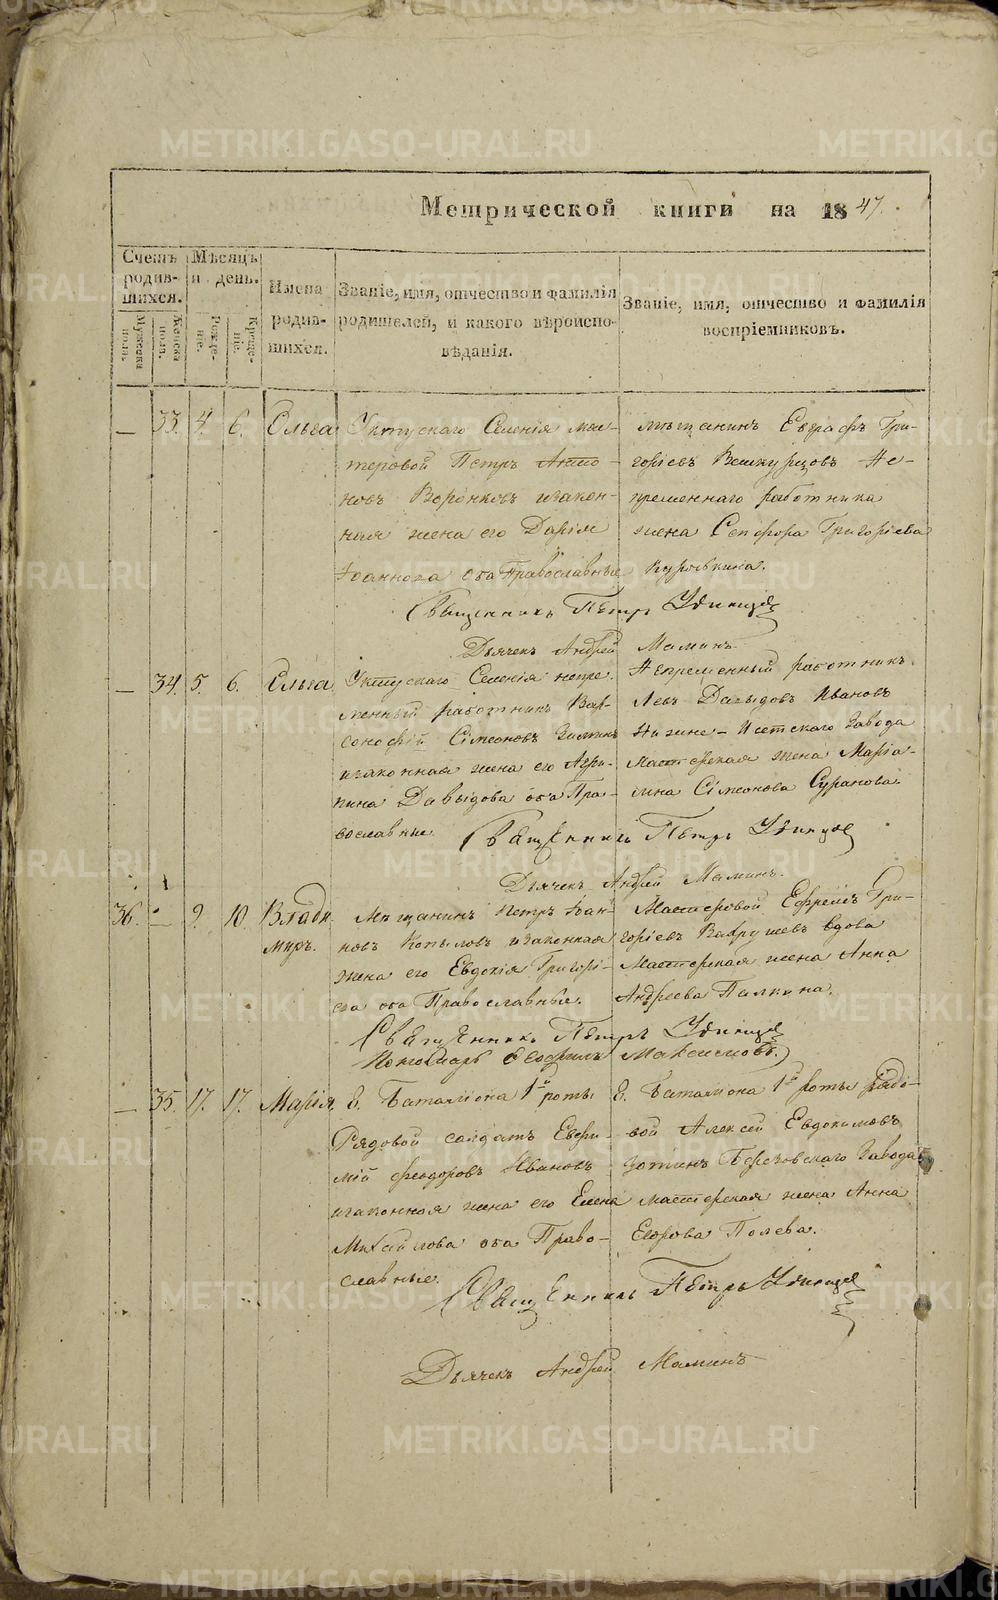 Метрической книги на 1847.
Счетъ родив-шихся.
Мѣсяцъ и день.
Имена родив-шихся.
Званіе, имя, отчество и фамилія родителей, и какого вѣроиспо-вѣданія.
Званіе, имя, отчество и фамилія воспріемниковъ.
Мужеска пола.
Женска пола.
Рожде-ніе.
Креще-ніе.
— 33. 4. 6. Ольга
Уктускаго Селенія мас-
теровой Петръ Анто-
новъ Воронковъ изакон-
ная жена его Дарія
Іоаннова оба Православные
мѣщанинъ Евграфъ Гри-
горіевъ Не-
пременнаго работника
жена Сепфора Григоріева
Священникъ Петръ Удинцев
Дьячекъ Андрей Маминъ.
— 34. 5. 6. Ольга
Уктускаго Селенія непре-
менный работникъ Вар-
сонофій Сімеоновъ
изаконная жена его Агри-
пина Давыдова оба Пра-
вославные
Непременный работникъ
Левъ Давыдовъ Ивановъ
Нижне-Исетскаго Завода
мастерская жена Маріа-
мна Сімеонова Суранова
Священникъ Петръ Удинцов
Дьячекъ Андрей Маминъ.
36. — 9. 10. Влади-
миръ.
Мѣщанинъ Петръ Іоан-
новъ Копыловъ изаконная
жена его Евдокія Григорі-
ева оба Православные.
Мастеровой Ефремъ Гри-
горіевъ Вахрушевъ вдова
Мастерская жена Анна
Андреева Палкина.
Священникъ Петръ Удинцев
Пономарь Феофилъ Максимовъ.
— 35. 17. 17. Марія
8. Баталліона 1й роты
Рядовой солдатъ Евфи-
мій Феодоровъ Ивановъ
изаконная жена его Елена
Михайлова оба Право-
славные.
8. Баталіона 1й роты рядо-
вой Алексей Евдокимовъ
Зотинъ Березовскаго Завода
мастерская жена Анна
Егорова Полева.
Священникъ Петръ Удинцев
Дьячекъ Андрей Маминъ
METRIKI.GASO-URAL.RU